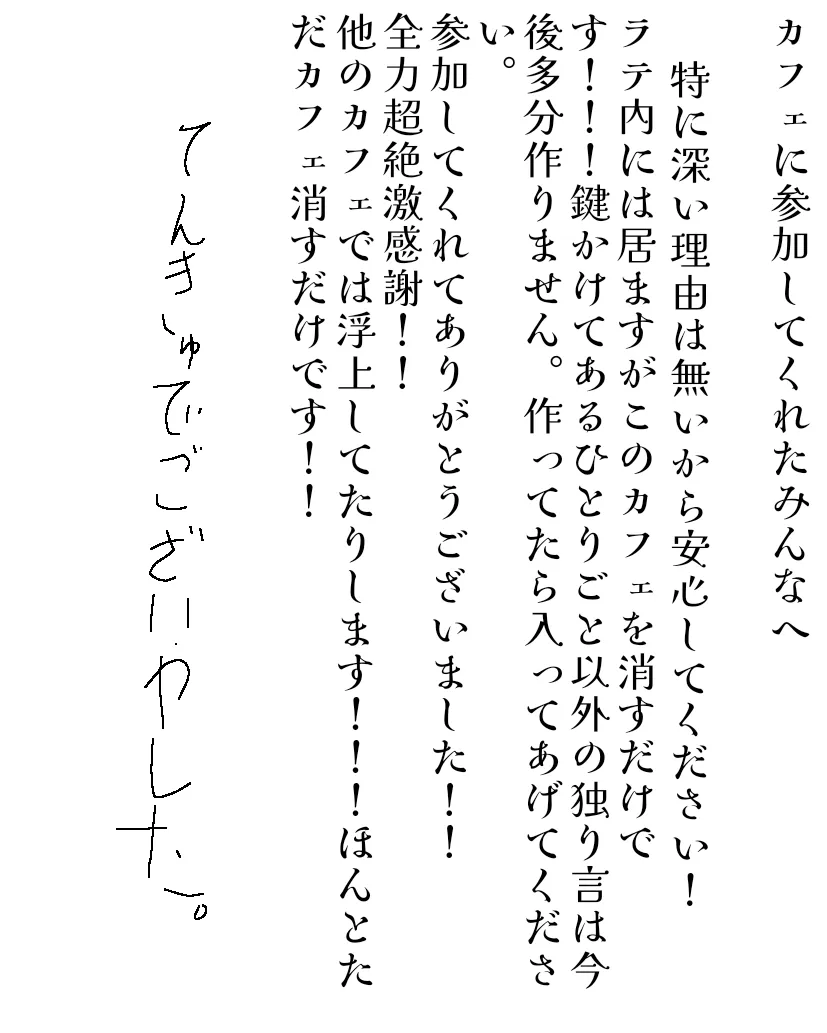 カフェに参加してくれたみんなへ
特に深い理由は無いから安心してください！
ラテ内には居ますがこのカフェを消すだけで
す！！！鍵かけてあるひとりごと以外の独り言は今
後多分作りません。作ってたら入ってあげてくださ
い。
参加してくれてありがとうございました！！
全力超絶激感謝！！
他のカフェでは浮上してたりします！！！ほんとた
だカフェ消すだけです！！
てんきゅでございやした。